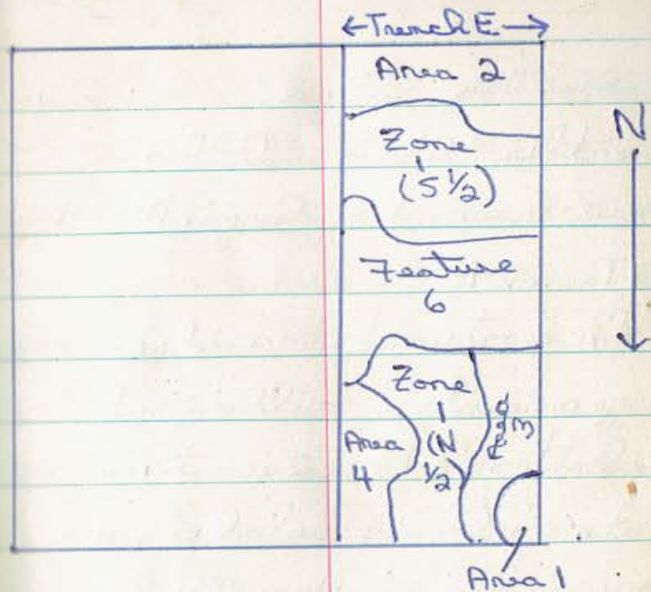 ←Trench E→
Area 2
N
Zone
1
(S 1/2)
Feature
6
Zone
1
(N
1/2)
Area
4
Area 3
Area 1